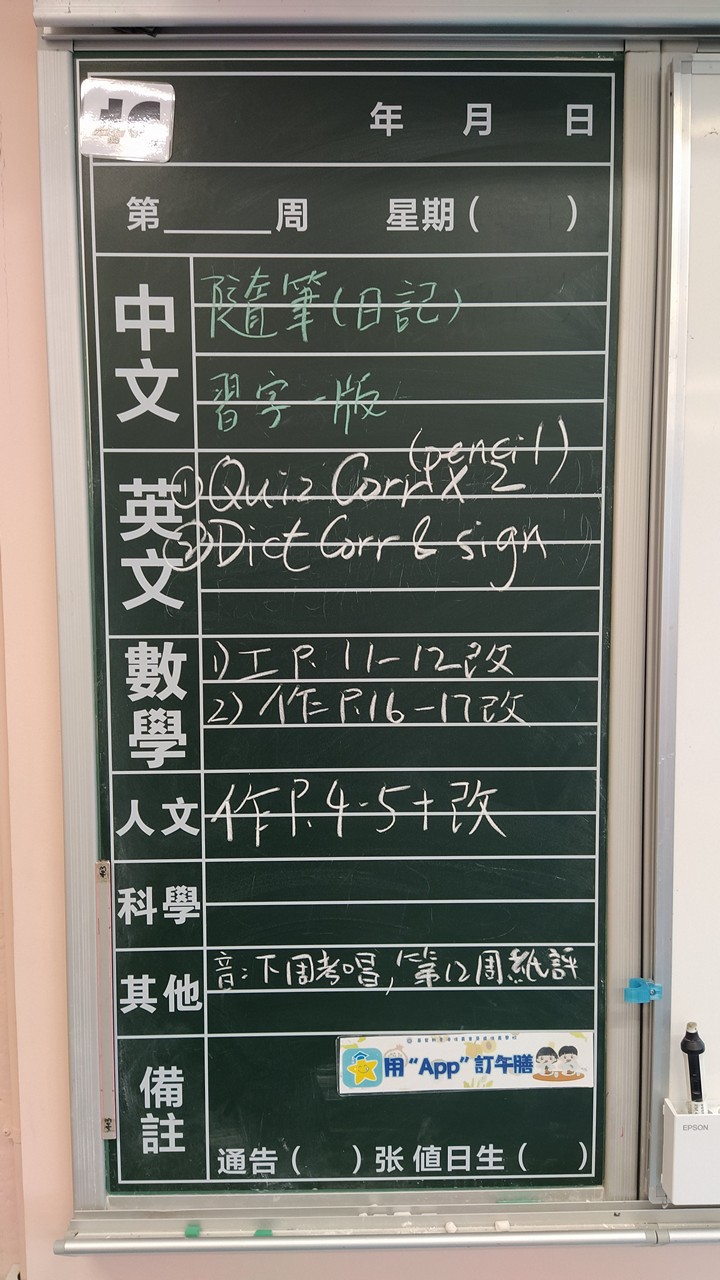 年 月 日
第______周 星期( )
中文
隨筆(日記)
習字一版
英文
(pencil)
①Quiz Corr x 2
②Dict Corr & sign
數學
1)工P.11-12改
2)作P.16-17改
人文
作P.4-5+改
科學
其他
音:下周考唱,第12周紙評
備註
用“App”訂午膳
通告( )张 值日生( )
EPSON